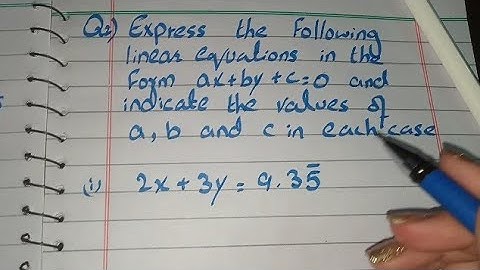 Q2) Express the Following
linear equations in the
Form ax+by+c=0 and
indicate the values of
a, b and c in each case
(i) 2x + 3y = 9.35̅